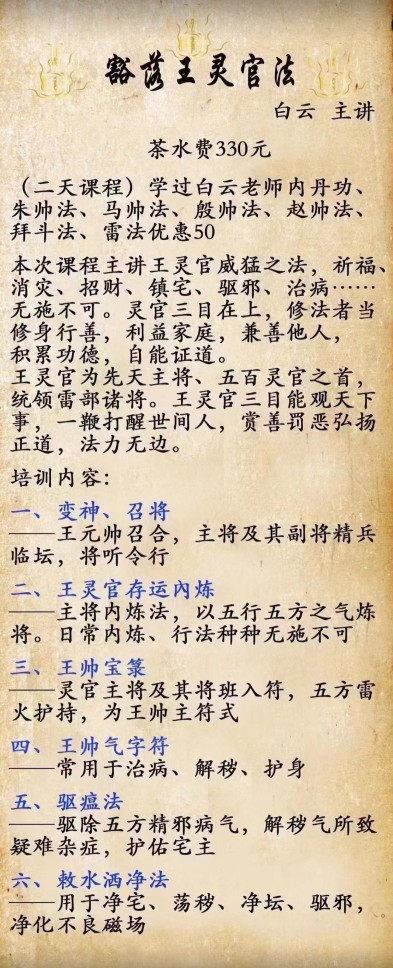 豁落王灵官法
白云 主讲
茶水费330元
（二天课程）学过白云老师内丹功、
朱帅法、马帅法、殷帅法、赵帅法、
拜斗法、雷法优惠50
本次课程主讲王灵官威猛之法，祈福、
消灾、招财、镇宅、驱邪、治病……
无施不可。灵官三目在上，修法者当
修身行善，利益家庭，兼善他人，
积累功德，自能证道。
王灵官为先天主将、五百灵官之首，
统领雷部诸将。王灵官三目能观天下
事，一鞭打醒世间人，赏善罚恶弘扬
正道，法力无边。
培训内容：
一、变神、召将
——王元帅召合，主将及其副将精兵
临坛，将听令行
二、王灵官存运內炼
——主将内炼法，以五行五方之气炼
将。日常内炼、行法种种无施不可
三、王帅宝箓
——灵官主将及其将班入符，五方雷
火护持，为王帅主符式
四、王帅气字符
——常用于治病、解秽、护身
五、驱瘟法
——驱除五方精邪病气，解秽气所致
疑难杂症，护佑宅主
六、敕水洒净法
——用于净宅、荡秽、净坛、驱邪，
净化不良磁场